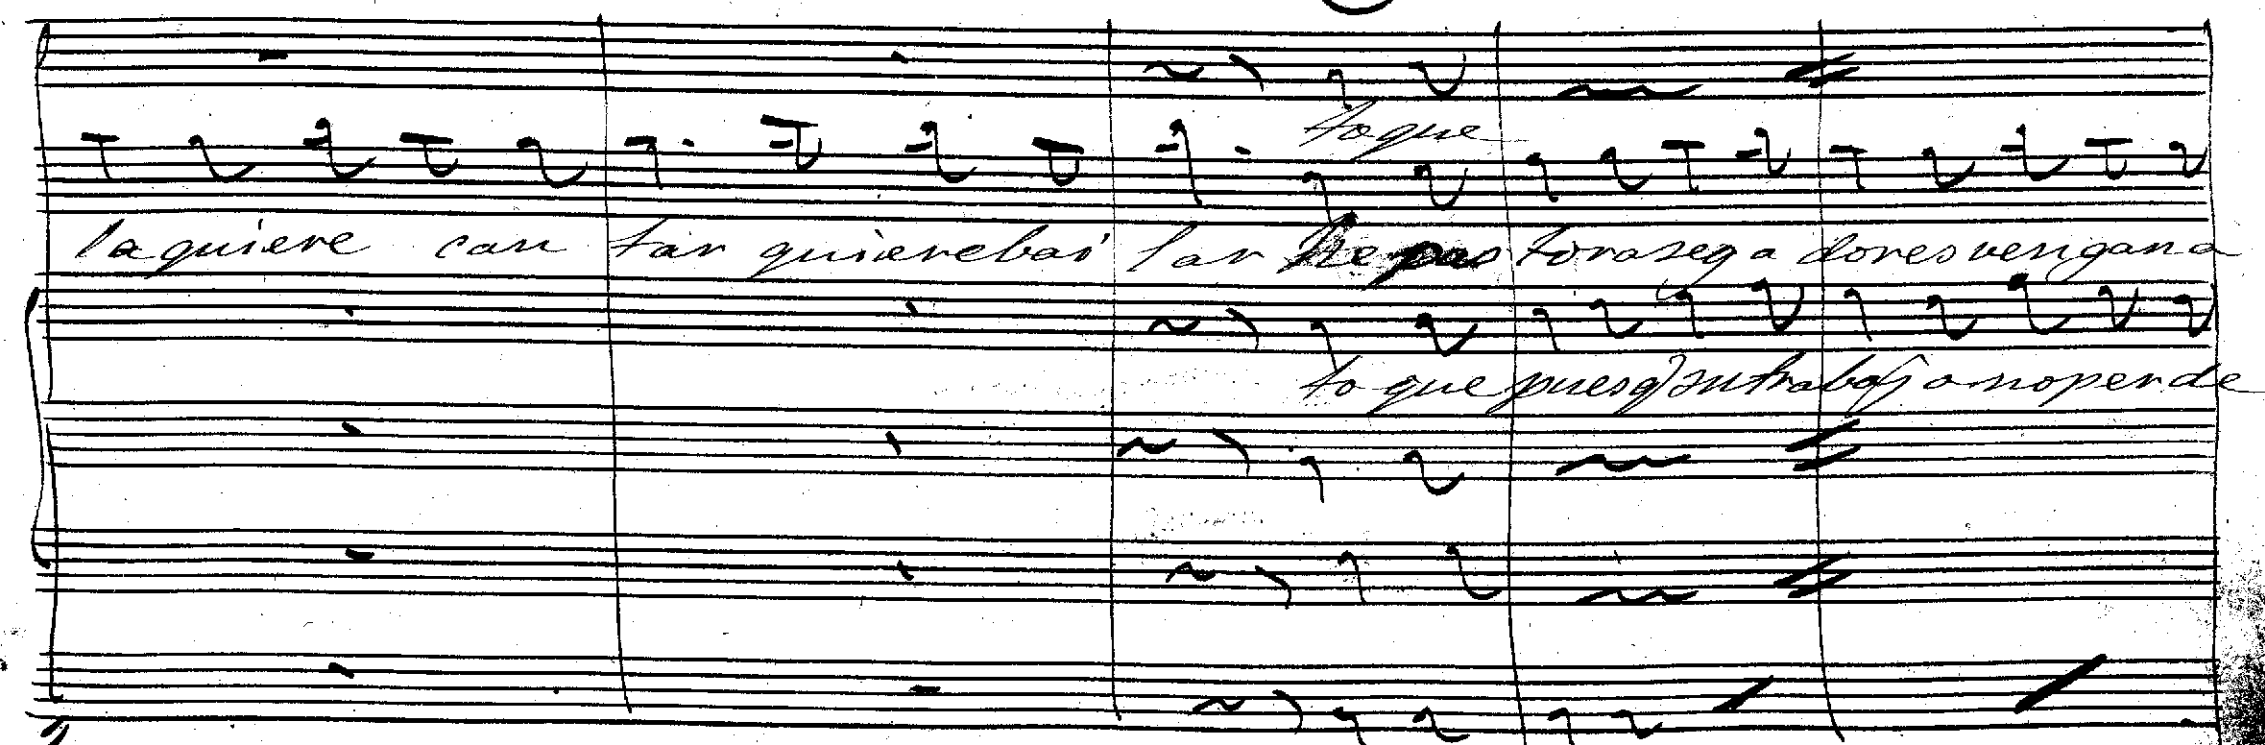 toque
la quiere can tar quiere bai lar pas tora sega dores vengan a
to que pues q su trabajo no perde